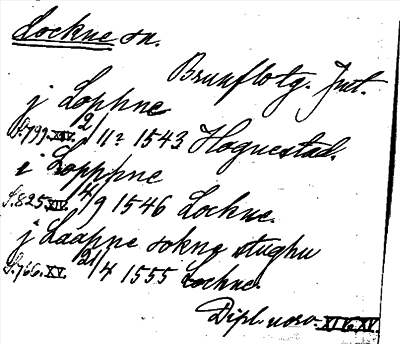 Lockne sn.
Brunflo tg. Jmt.
j Loppne
S. 799. XIV. 2/11 1543 Hognestad.
i Loppne
S. 825 XIV. 4/9 1546 Lockne.
j Laapne sokne stughu
S. 766. XV. 21/4 1555 Lockne.
Dipl. norv. XIV, XV.